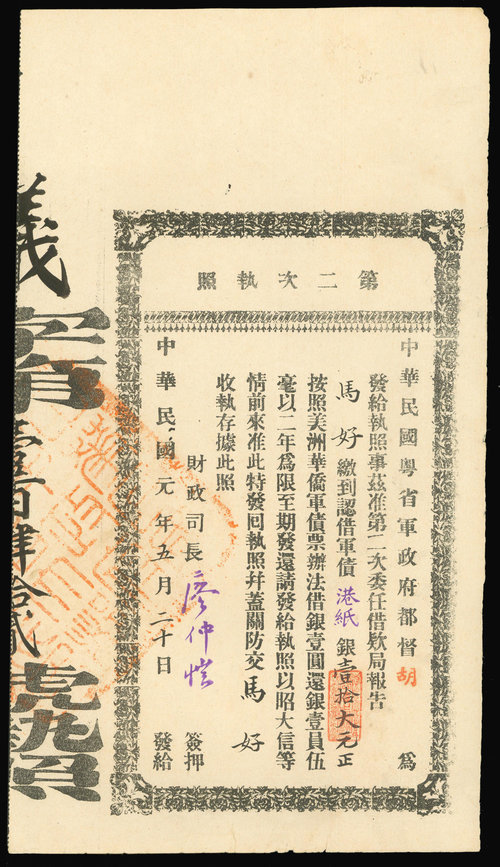 第二次執照
中華民國粵省軍政府都督胡　為
發給執照事茲准第二次委任借欵局報告
馬好繳到認借軍債港紙銀壹拾大元正
按照美洲華僑軍債票辦法借銀壹圓還銀壹員伍
毫以二年為限至期發還請發給執照以昭大信等
情前來准此特發回執照幷蓋關防交馬好
收執存據此照
財政司長廖仲愷簽押
中華民國元年五月二十日　發給
義字第壹百肆拾貳號執照